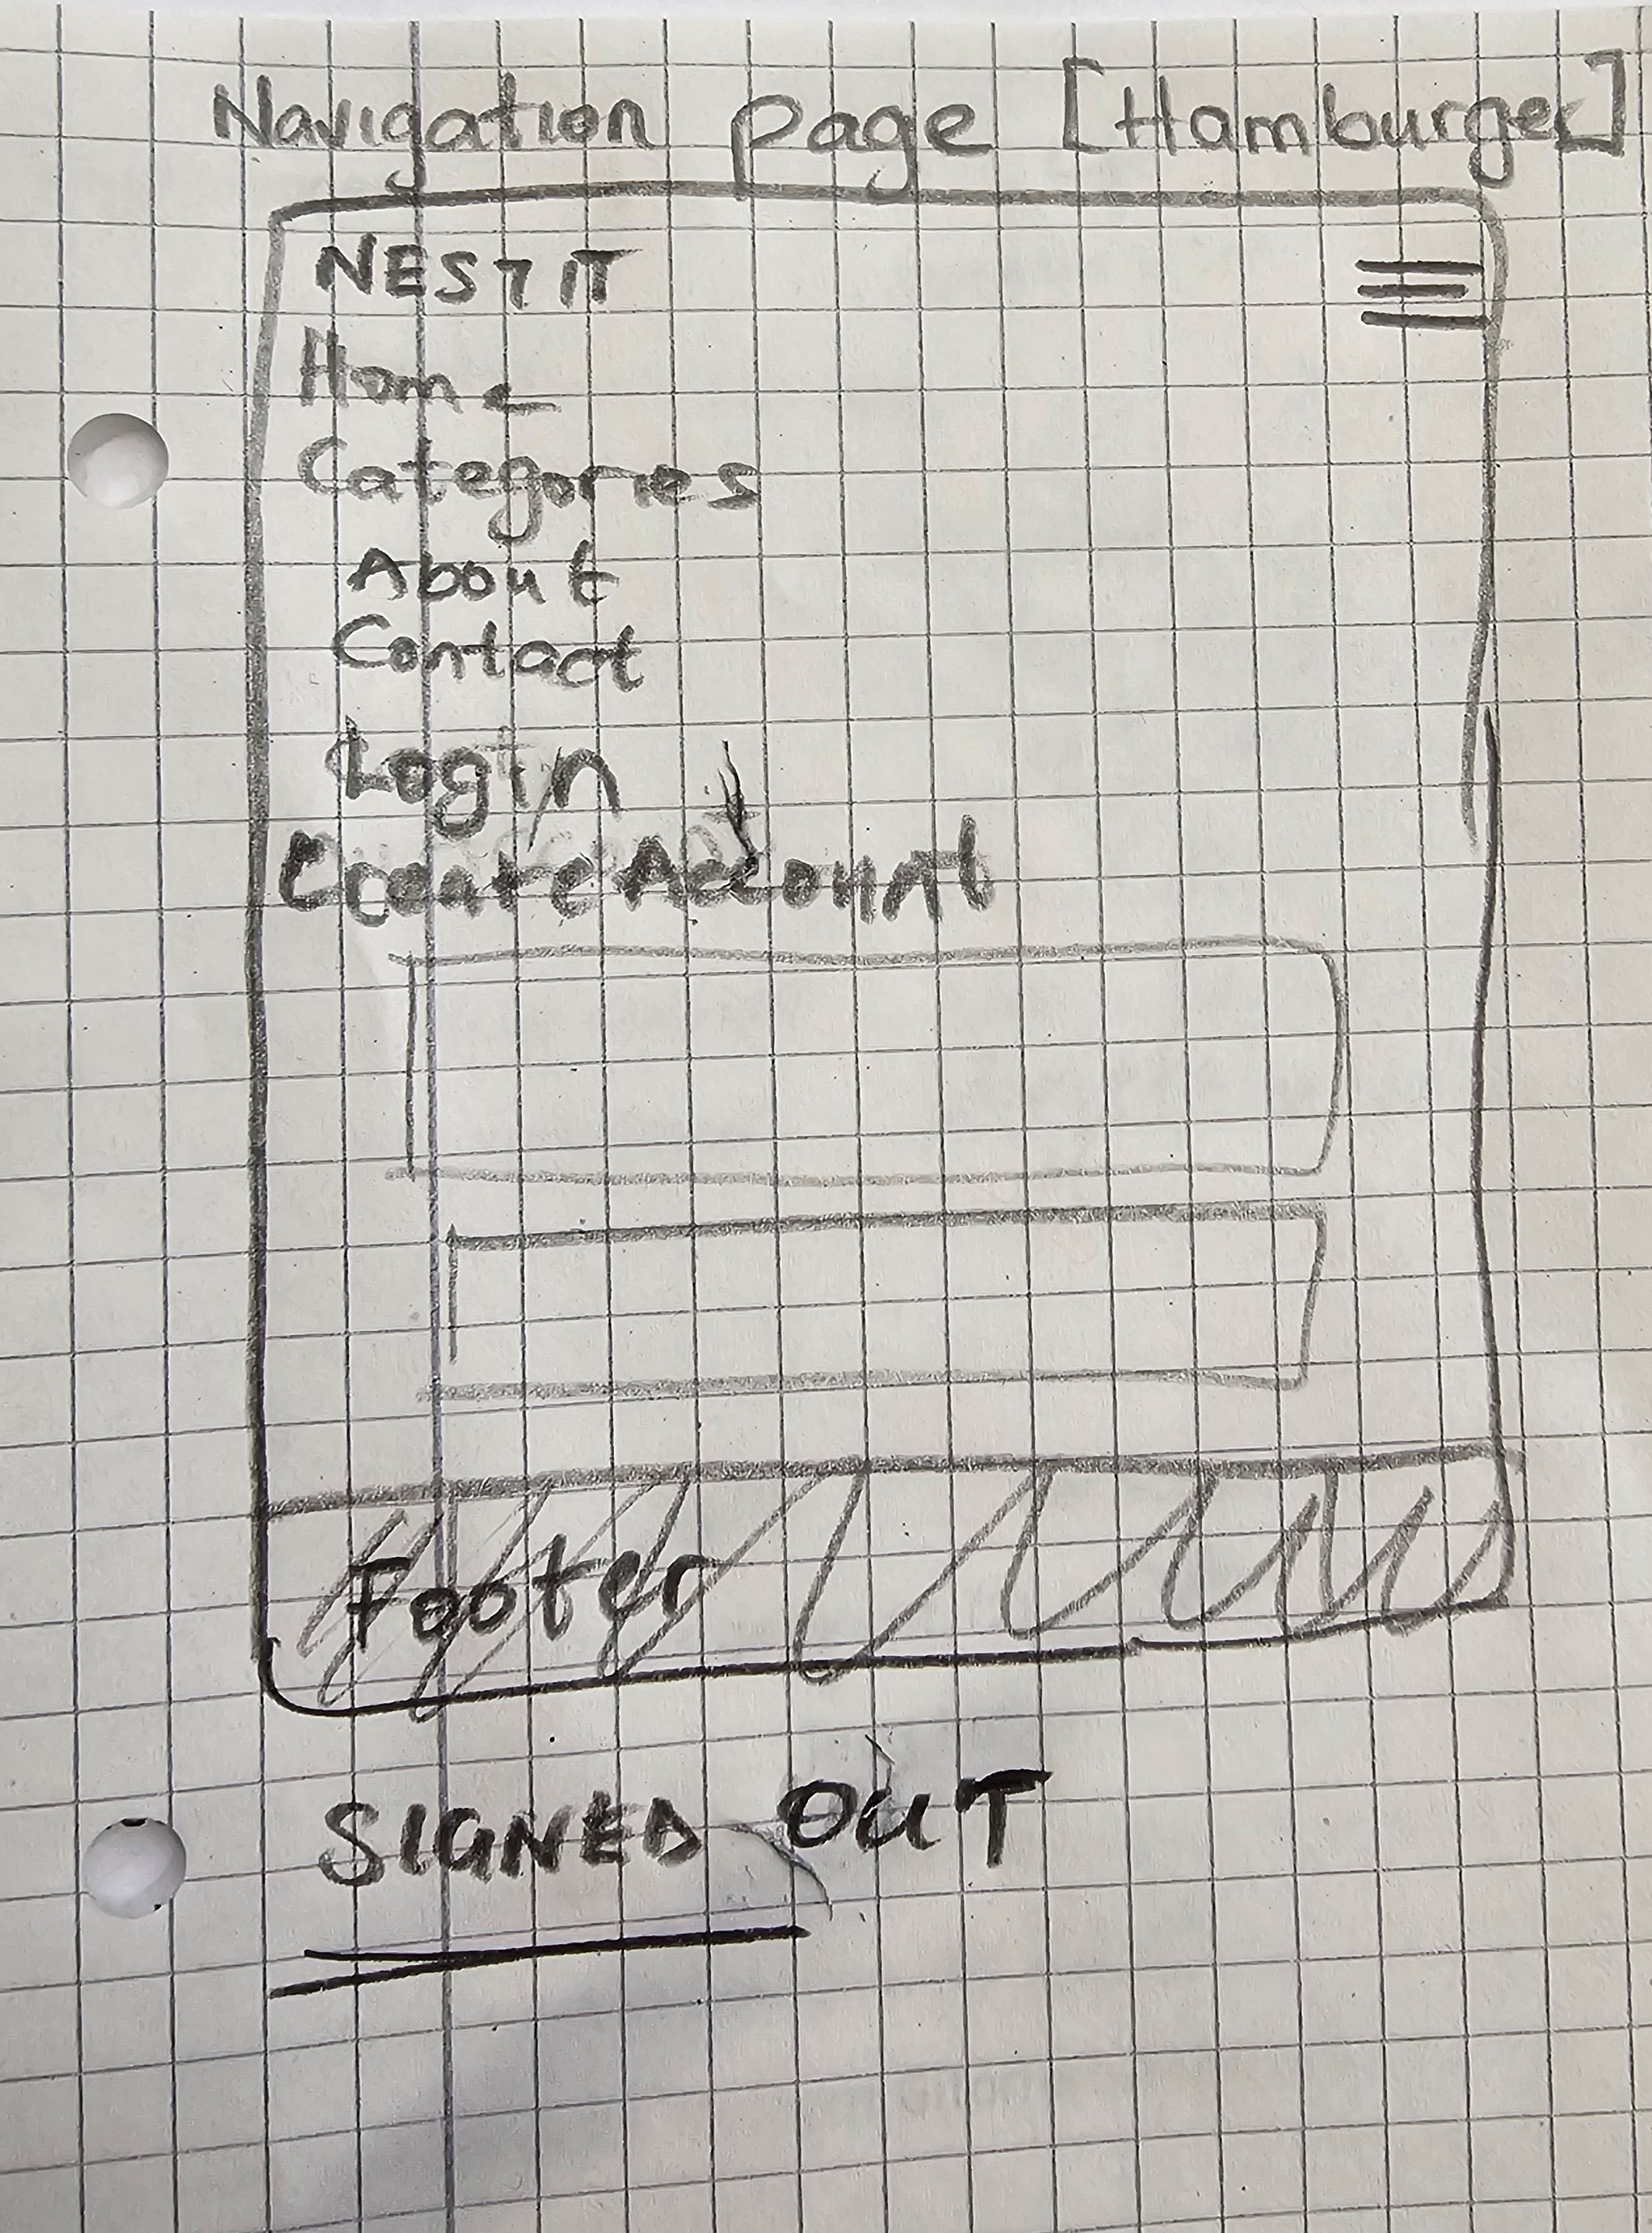 Navigation page [Hamburger]
NEST IT
Home
Categories
About
Contact
Login
Create Account
Footer
SIGNED OUT